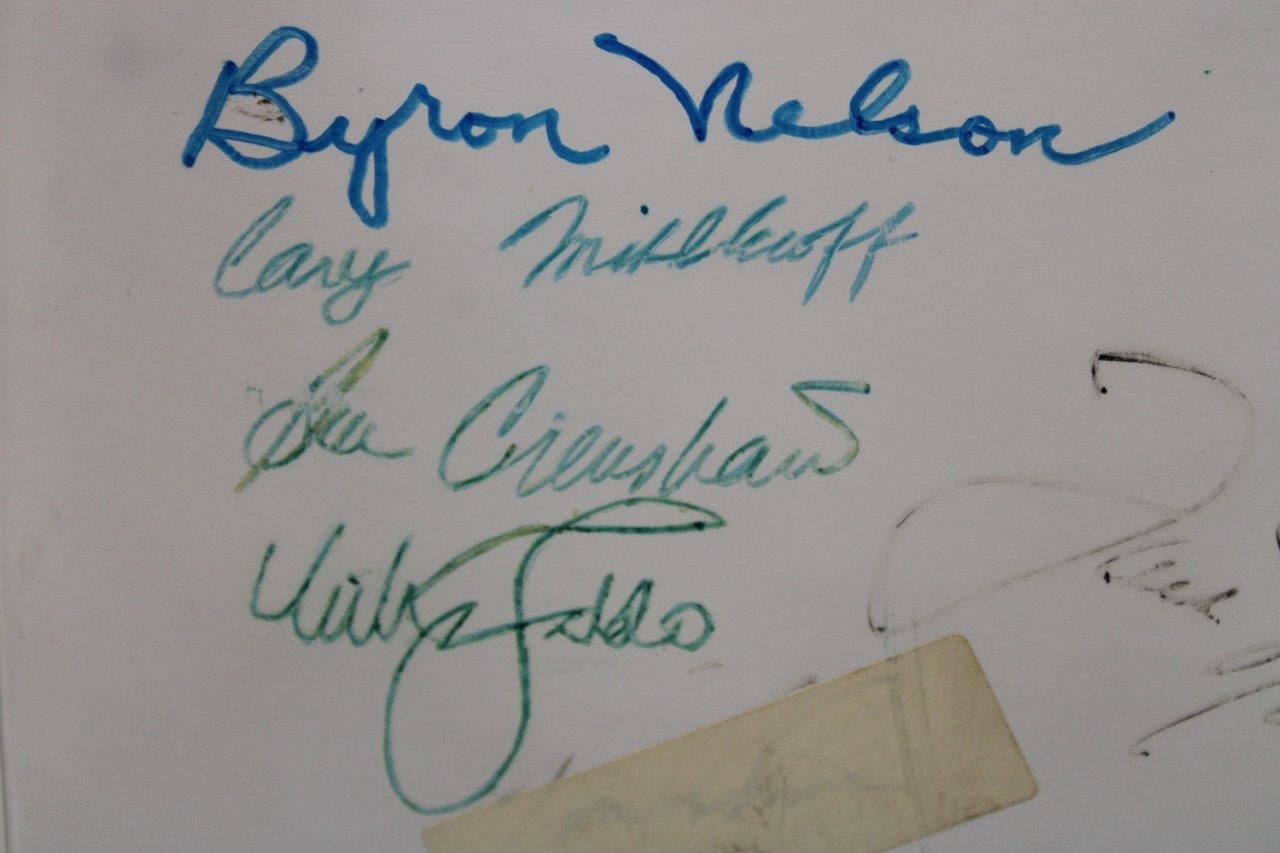 Byron Nelson
Cary Middlecoff
Ben Crenshaw
Nick Faldo